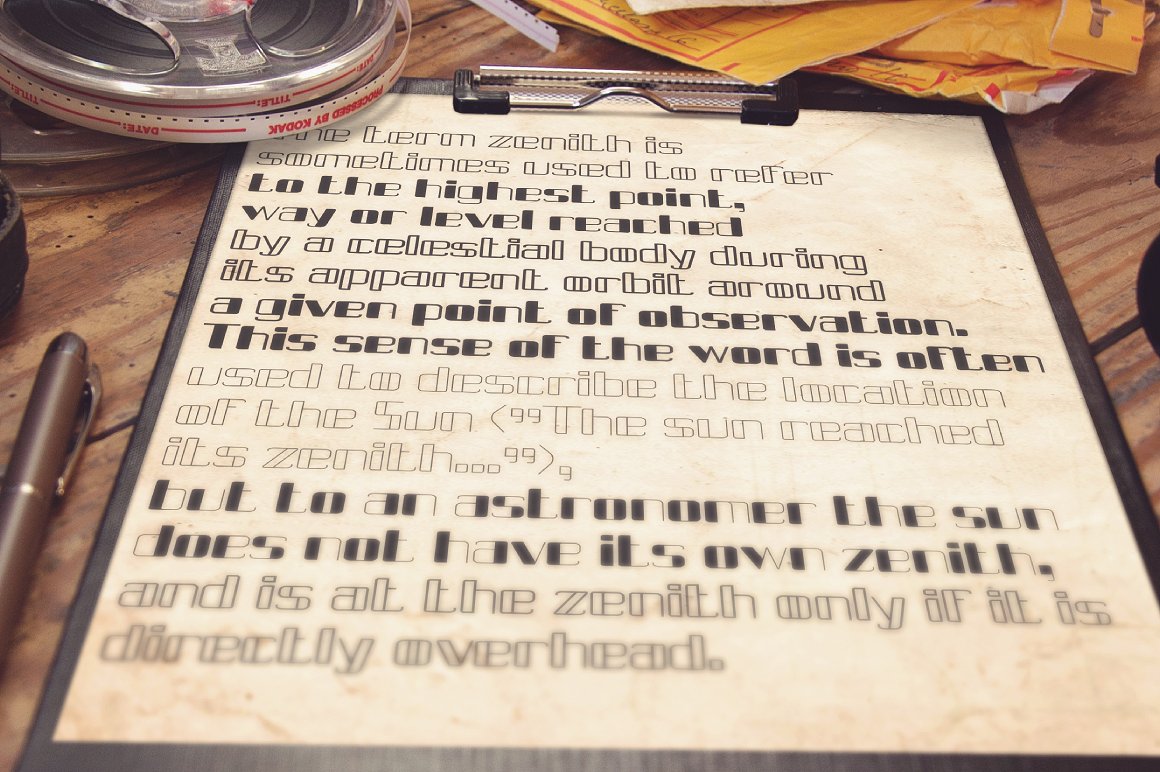 PROCESSED BY KODAK
TITLE:
DATE:
TITLE:
The term zenith is
sometimes used to refer
to the highest point,
way or level reached
by a celestial body during
its apparent orbit around
a given point of observation.
This sense of the word is often
used to describe the location
of the Sun (”The sun reached
its zenith...”),
but to an astronomer the sun
does not have its own zenith,
and is at the zenith only if it is
directly overhead.